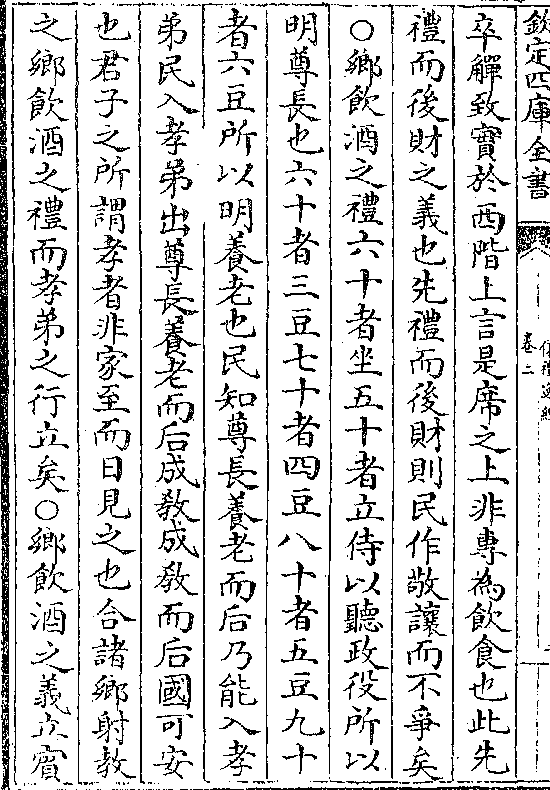 欽定四庫全書
卷二
卒觶致實於西階上言是席之上非專為飲食也此先
禮而後財之義也先禮而後財則民作敬讓而不爭矣
○鄉飲酒之禮六十者坐五十者立侍以聽政役所以
明尊長也六十者三豆七十者四豆八十者五豆九十
者六豆所以明養老也民知尊長養老而后乃能入孝
弟民入孝弟出尊長養老而后成教成教而后國可安
也君子之所謂孝者非家至而日見之也合諸鄉射教
之鄉飲酒之禮而孝弟之行立矣○鄉飲酒之義立賓